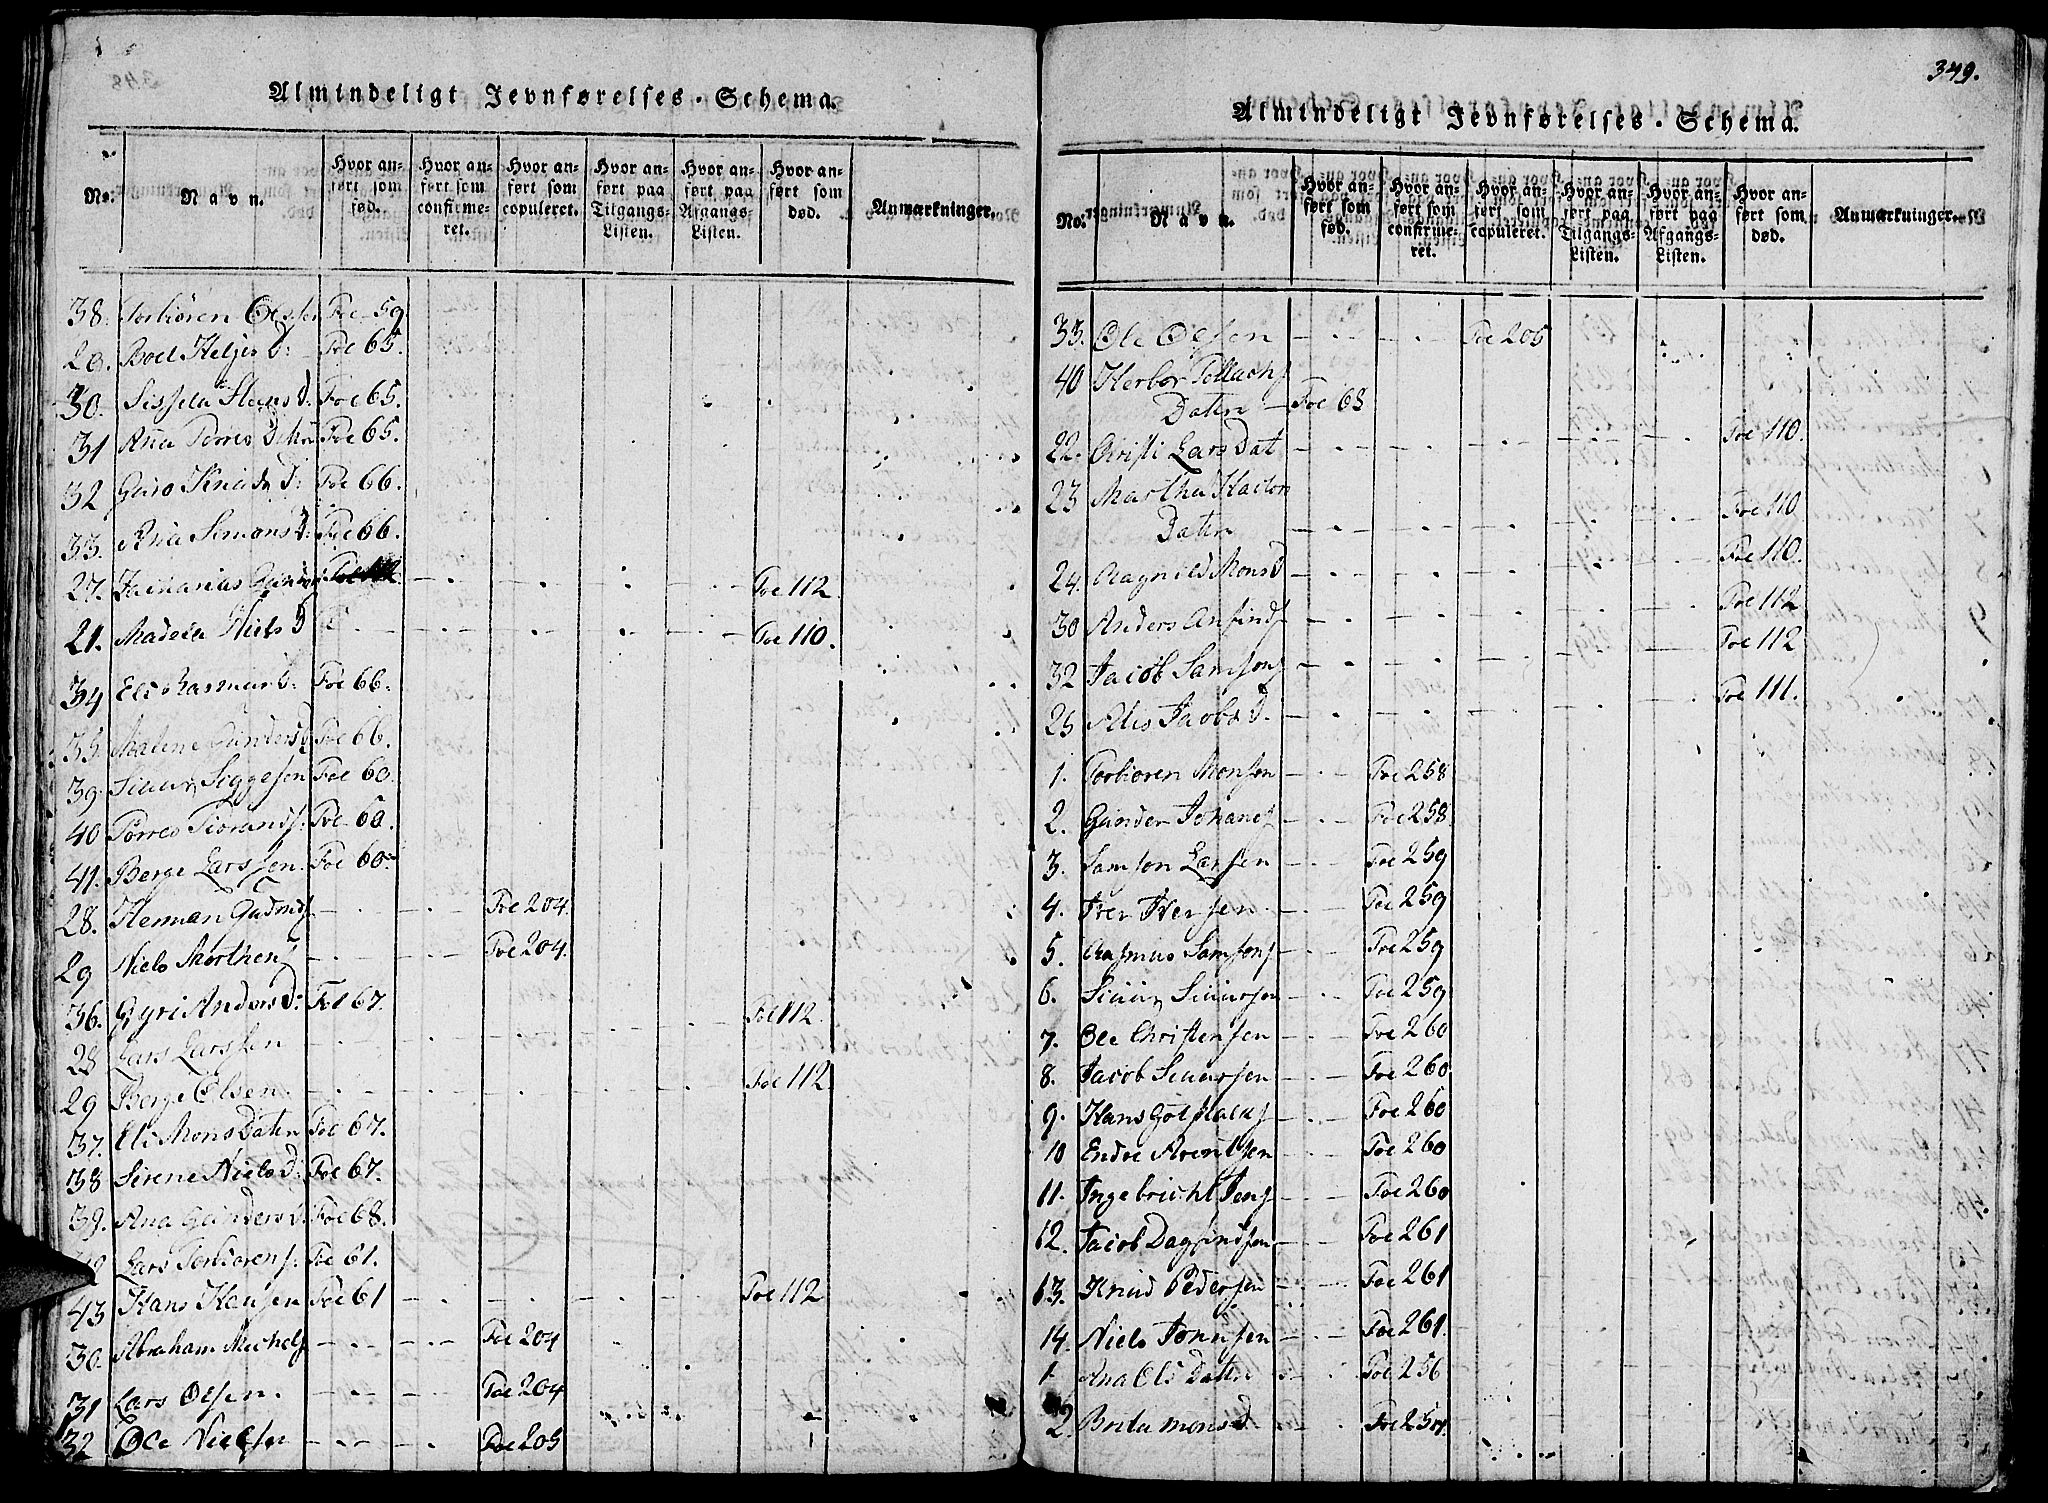 Almindeligt Jevnførelses-Schema.
No. Navn. Hvor anført som fød. Hvor anført som confirmeret. Hvor anført som copuleret. Hvor anført paa Tilgangs-Listen. Hvor anført paa Afgangs-Listen. Hvor anført som død. Anmærkninger.
38. Torbiören Olssen Foe 59
29. Boel Heljes D: Foe 65.
30. Sissela Steens D. Foe 65.
31 Aña Torres Datr Foe 65.
32 Guro Knuds D: Foe 66.
33. Ana Simons D. Foe 66.
27. Zacharias Foe 112.
21. Madela Niels D Foe 110.
34 Eli Rasmus D: Foe 66.
35. Malene Gunders D Foe 66.
39 Siuur Siggesen Foe 60.
40 Torres Foe 60.
41. Berge Larssen. Foe 60
28. Herman Foe 204.
29 Niels Morthens Foe 204.
36. Gyri Anders D: Fol 67.
28 Lars Larssen Foe 112.
29 Berge Olsen. Foe 112.
37. Eli Mons Daten Foe 67.
38 Sirene Niels D: Foe 67.
39. Ana Gunders D. Foe 68.
Lars Torbiorens. Foe 61.
43 Hans Hansen Foe 61 Foe 112
30. Abraham Michels Foe 204
31 Lars Olsen. Foe 204
32 Ole Nielsen Foe 205
349.
Almindeligt Jevnførelses-Schema.
No. Navn. Hvor anført som fød. Hvor anført som confirmeret. Hvor anført som copuleret. Hvor anført paa Tilgangs-Listen. Hvor anført paa Afgangs-Listen. Hvor anført som død. Anmærkninger.
33. Ole Olsen Foe 205
40 Herbor Tollachs
Daten Foe 68
22. Christi Lars Dat Foe 110.
23 Martha
Daten Foe 110
24. Ragnild Mons D Foe 110.
30 Anders Anfinds Foe 112
32 Jacob Samsons Foe 112
25 Alis Jacobs D. Foe 111.
1. Torbioren Monsen Foe 258
2. Gunder Johanes Foe 258.
3. Samson Larsen Foe 259
4. Iver Iversen Foe 259
5. Rasmus Samsons Foe 259
6. Siuur Siuursen Foe 259
7. Ole Christensen Foe 260
8. Jacob Siuursen Foe 260.
9. Hans Foe 260
10 Endre Arentsen Foe 260
11. Ingebricht Jens Foe 260
12. Jacob Dagfindsen Foe 261
13. Knud Pedersen Foe 261
14. Niels Johnsen Foe 261.
1 Ana Ols Daten Foe 256
2. Brita Mons D. Foe